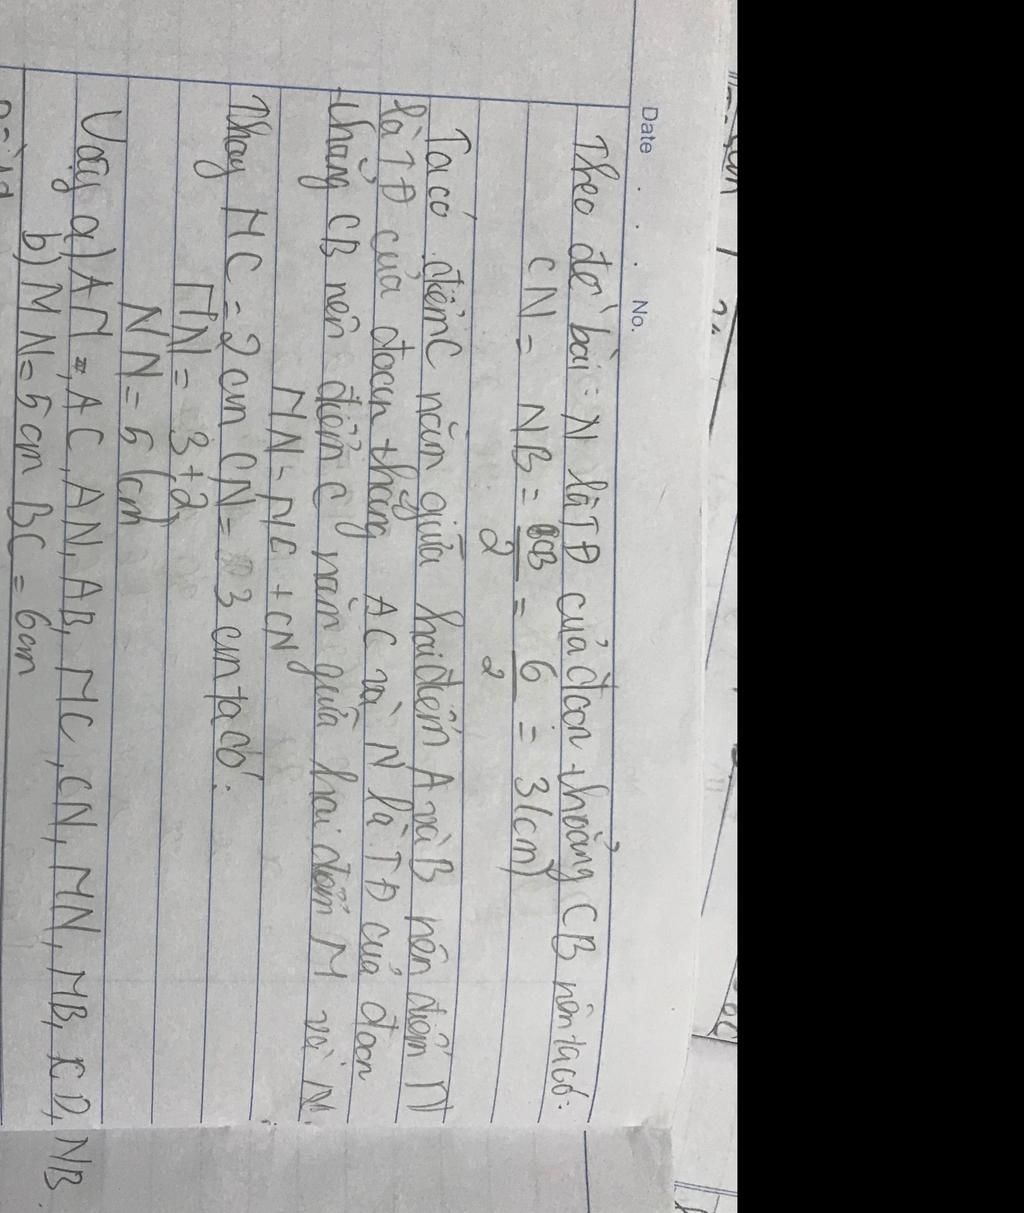 Date . . . No.
Theo đề bài: N là TĐ của đoan thẳng CB nên ta có:
CN = NB = CB/2 = 6/2 = 3 (cm)
Ta có điểm C nằm giữa hai điểm A và B nên điểm M
là TĐ của đoan thẳng AC và N là TĐ của đoan
thẳng CB nên điểm C nằm giữa hai điểm M và N.
MN = MC + CN
Thay MC = 2 cm CN = 3 cm ta có:
MN = 3 + 2
NN = 5 (cm)
Vậy a) AM, AC, AN, AB, MC, CN, MN, MB, CD, NB.
b) MN = 5 cm BC = 6cm